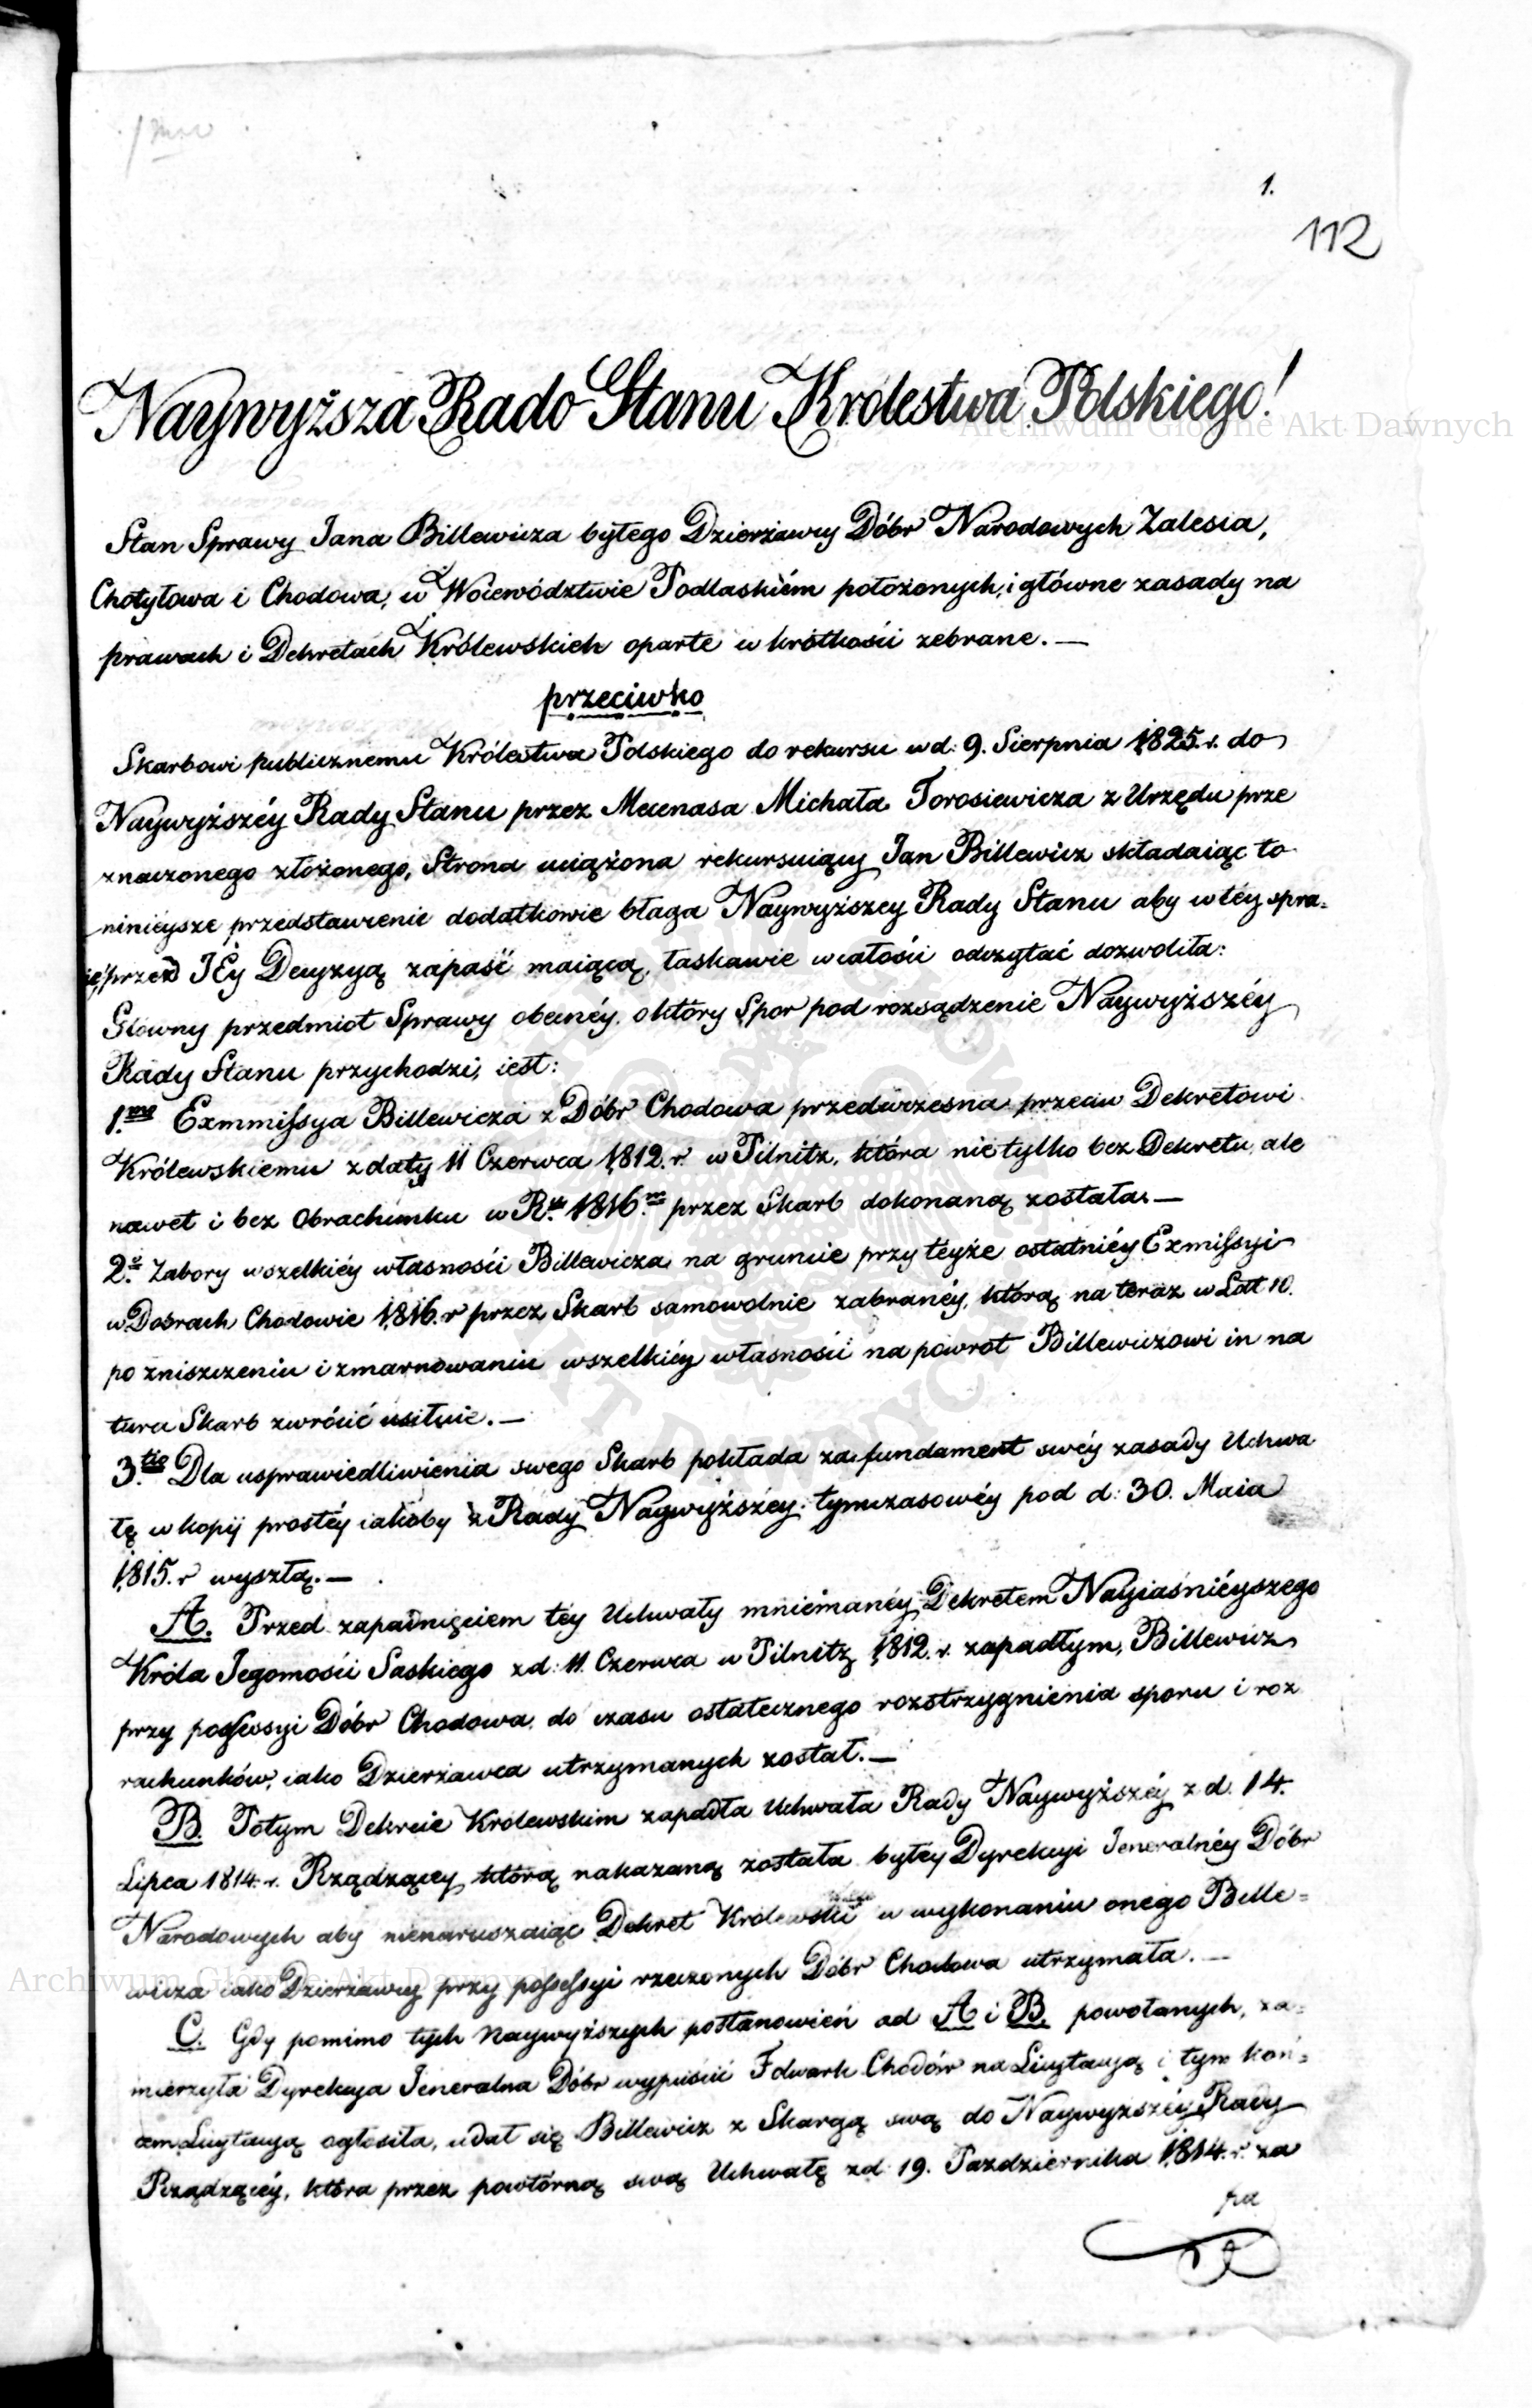 1.
112
Naywyższa Rado Stanu Krolestwa Polskiego!
Stan Sprawy Jana Billewicza byłego Dzierżawcy Dóbr Narodowych Zalesia,
Chotyłowa i Chodowa, w Woiewództwie Podlaskiém położonych, i główne zasady na
prawach i Dekretach Królewskich oparte w krótkości zebrane. —
przeciwko
Skarbowi publicznemu Królestwa Polskiego do rekursu w d: 9. Sierpnia 1825. r. do
Naywyższéy Rady Stanu przez Mecenasa Michała Torosiewicza z Urzędu prze
znaczonego złożonego, Strona uciążona rekursuiący Jan Billewicz składaiąc to
ninieysze przedstawienie dodatkowie błaga Naywyższey Rady Stanu aby w téy spra=
wie przed JEy Decyzyą zapaść maiącą, łaskawie w całości odczytać dozwoliła:
Główny przedmiot Sprawy obecnéy, o który Spor pod rozsądzenie Naywyższéy
Rady Stanu przychodzi, iest:
1.mo Exmmissya Billewicza z Dóbr Chodowa przedwczesna przeciw Dekretowi
Królewskiemu z daty 11 Czerwca 1812. r. w Pilnitz, która nie tylko bez Dekretu, ale
nawet i bez Obrachunku w R.u 1816.m przez Skarb dokonaną została. —
2.o Zabory wszelkiéy własności Billewicza na gruncie przy téyże ostatniéy Exmissyi
w Dobrach Chodowie 1816. r przez Skarb samowolnie zabranéy, którą na teraz w Lat 10.
po zniszczeniu i zmarnowaniu wszelkiéy własności na powrót Billewiczowi in na
tura Skarb zwrócić usiłuie. —
3.tio Dla usprawiedliwienia swego Skarb pokłada za fundament swéy zasady Uchwa
łę w kopij prostéy iakoby z Rady Naywyższéy tymczasowéy pod d: 30. Maia
1815. r wyszłą. —
A. Przed zapadnięciem téy Uchwały mniemanéy Dekretem Nayiaśniéyszego
Króla Jegomości Saskiego z d: 11. Czerwca w Pilnitz 1812. r. zapadłym, Billewicz
przy possessyi Dóbr Chodowa do czasu ostatecznego rozstrzygnienia sporu i roz
rachunków, iako Dzierżawca utrzymanych został. —
B. Potym Dekrecie Królewskim zapadła Uchwała Rady Naywyższéy z d. 14.
Lipca 1814. r. Rządzącey którą nakazaną została byłey Dyrekcyi Jeneralnéy Dóbr
Narodowych aby nienaruszaiąc Dekret Królewski w wykonaniu onego Bille=
wicza iako Dzierzawcę przy possessyi rzeczonych Dóbr Chodowa utrzymała. —
C. Gdy pomimo tych Naywyższych postanowień ad A i B. powołanych, za=
mierzyła Dyrekcya Jeneralna Dóbr wypuścić Folwark Chodów na Licytacyą i tym koń=
cem Licytacyą ogłosiła, udał się Billewicz z Skargą swą do Naywyższéy Rady
Rządzącéy, która przez powtórną swą Uchwałę z d: 19. Pazdziernika 1814. r. za
pa
Archiwum Główne Akt Dawnych
Archiwum Główne Akt Dawnych